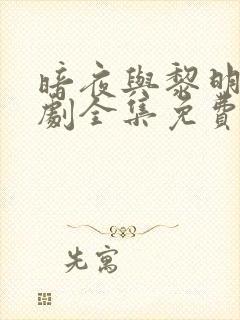 暗夜與黎明
劇全集免費
先寫